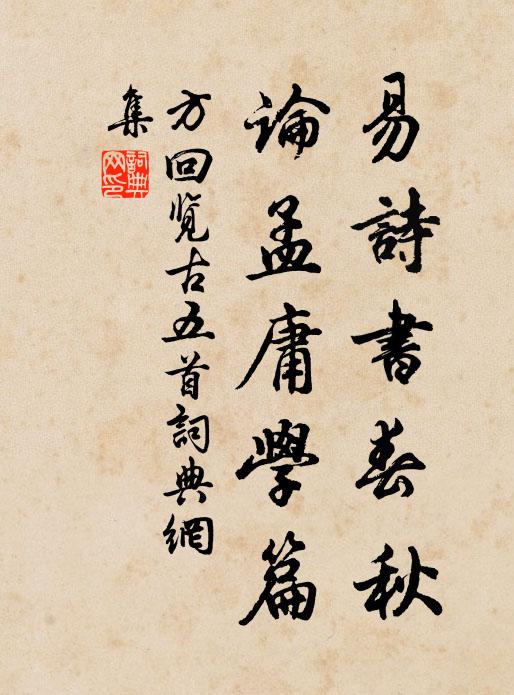 易詩書春秋
論孟庸學篇
方回覧古五首詞典網
集
詞典網印